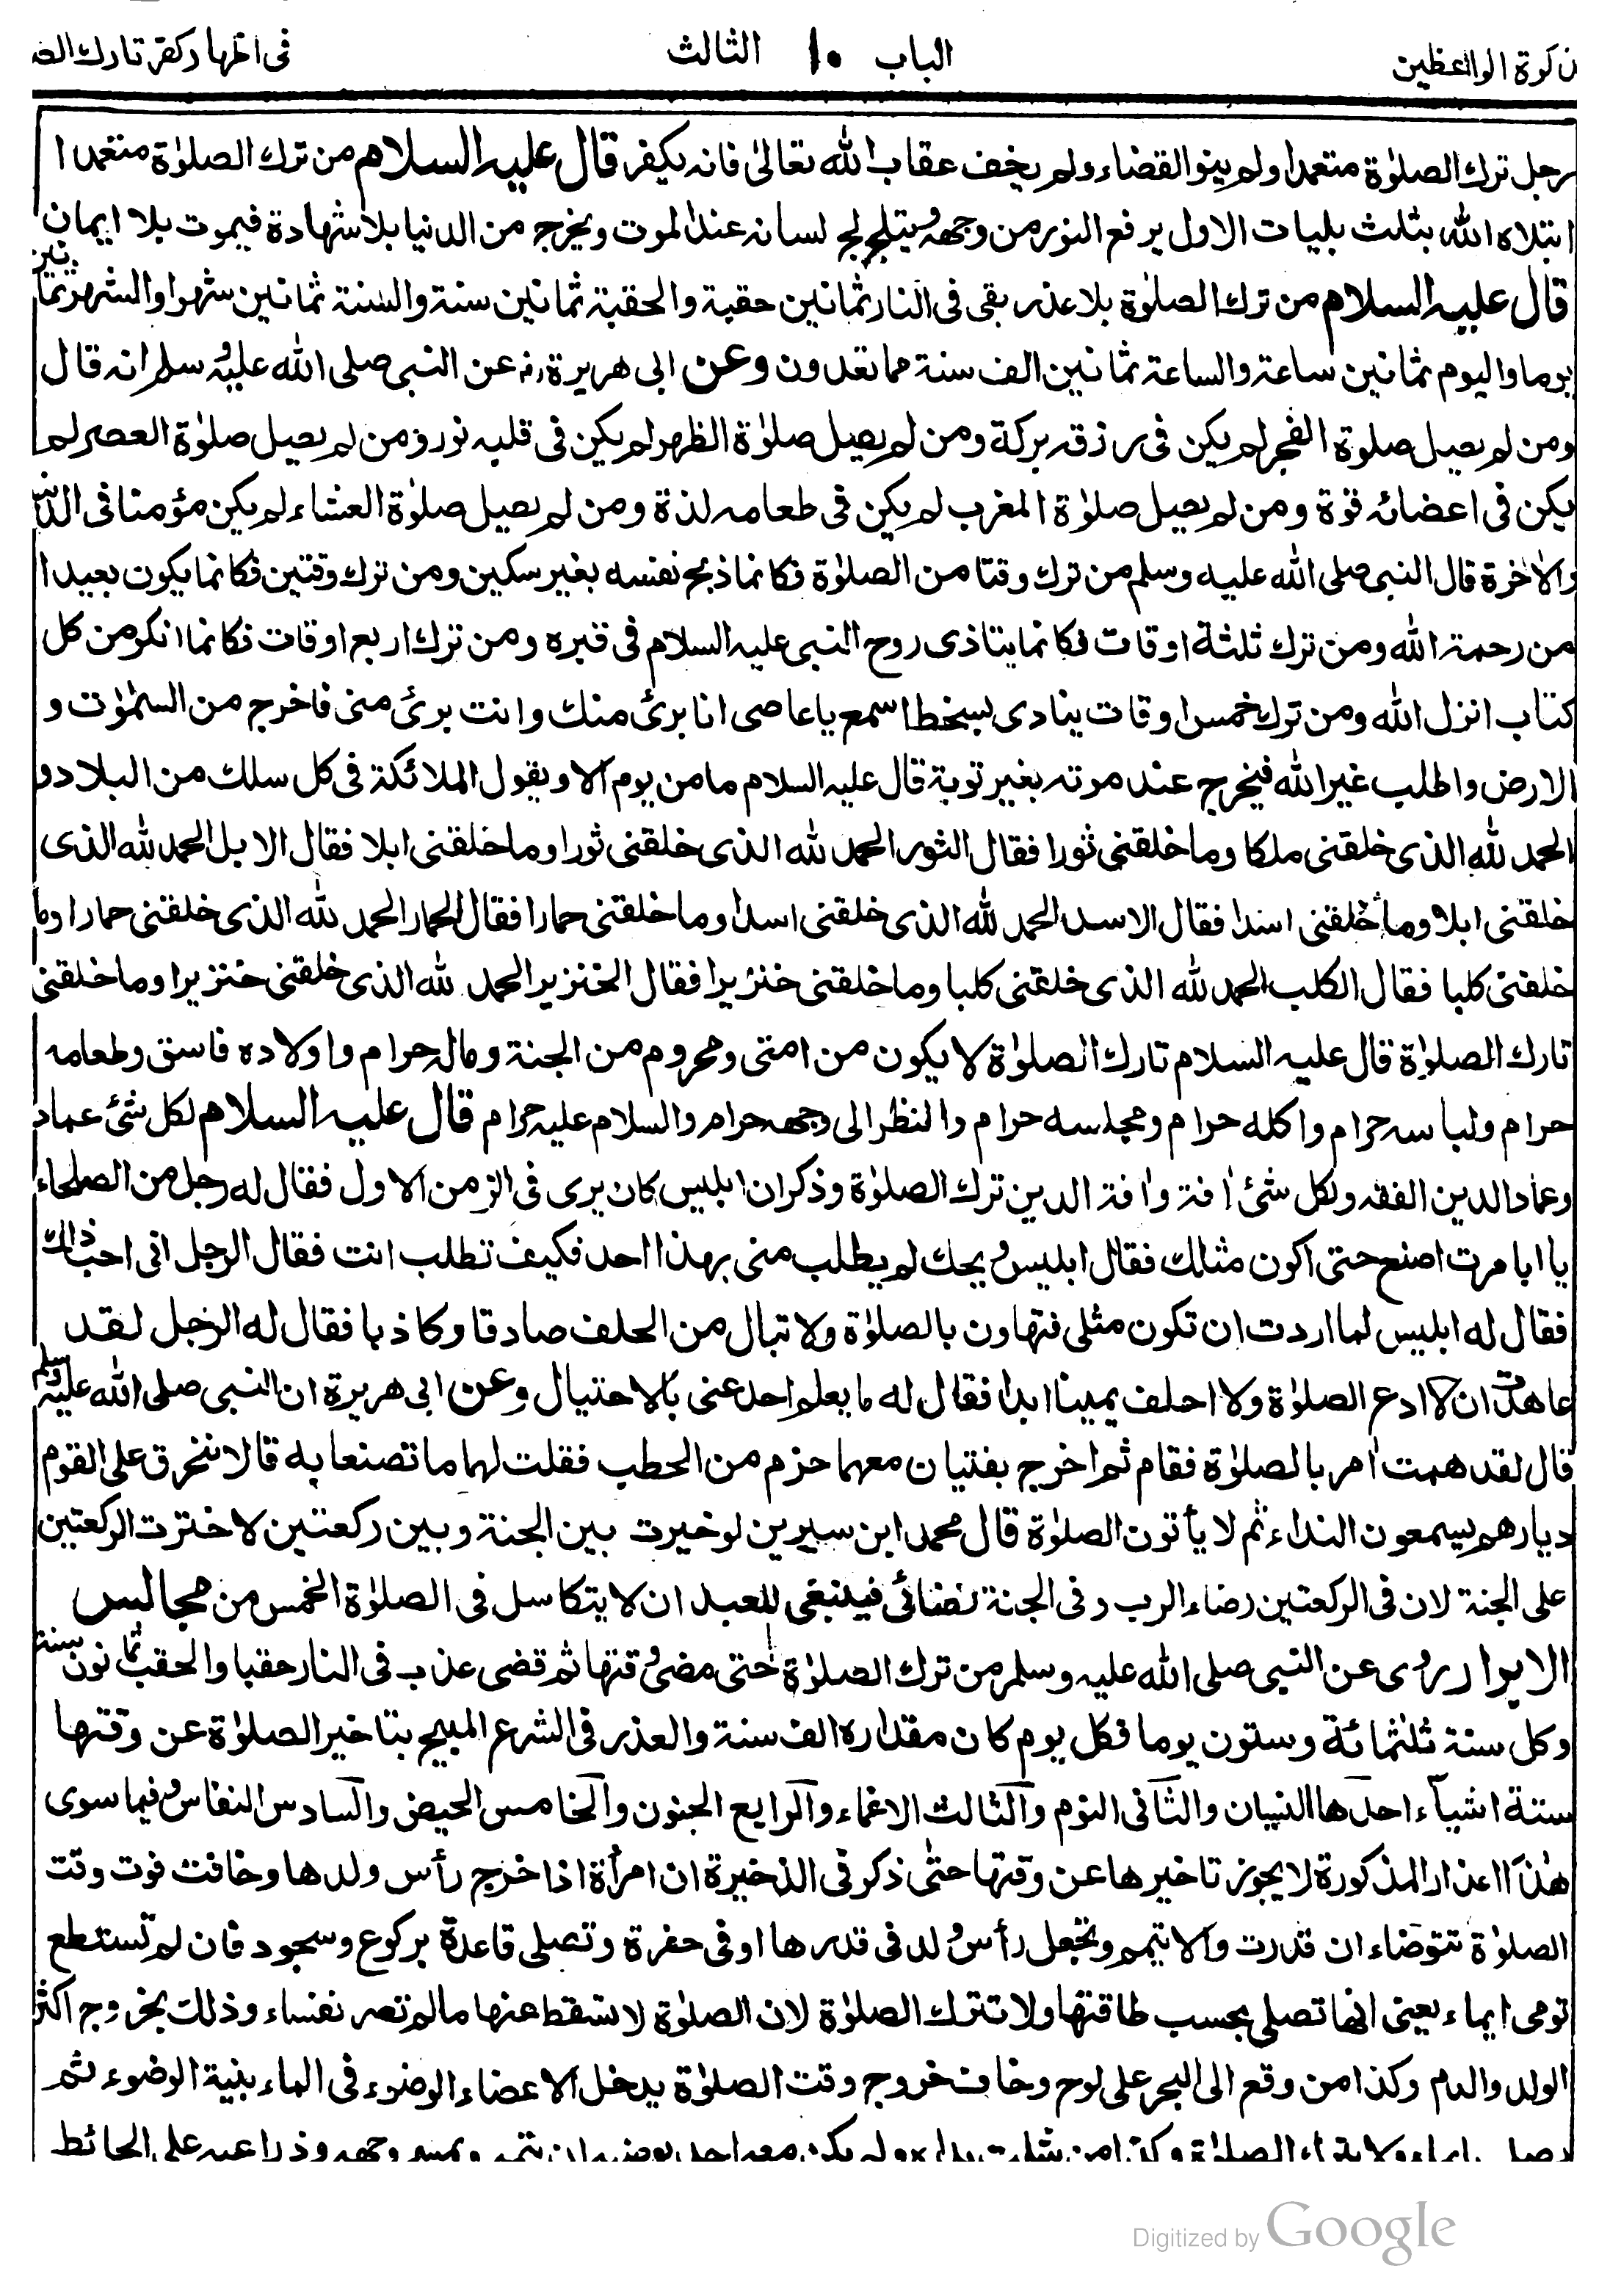 ذكرة الواعظين الباب ١٠ الثالث فى اظهار كفر تارك الصـ
رجل ترك الصلوٰة متعمدا ولم ينو القضاء ولم يخف عقاب الله تعالىٰ فانه يكفر قال عليه السلام من ترك الصلوٰة متعمدا
ابتلاه الله بثلث بليات الاول يرفع النور من وجهه ويتلجلج لسانه عند الموت ويخرج من الدنيا بلا شهادة فيموت بلا ايمان
قال عليه السلام من ترك الصلوٰة بلا عذر بقى فى النار ثمانين حقبة والحقبة ثمانين سنة والسنة ثمانين شهرا والشهر ثمانين
يوما واليوم ثمانين ساعة والساعة ثمانين الف سنة مما تعدون وعن ابى هريرة رض عن النبى صلى الله عليه وسلم انه قال
ومن لم يصل صلوة الفجر لم يكن فى رزقه بركة ومن لم يصل صلوٰة الظهر لم يكن فى قلبه نور ومن لم يصل صلوٰة العصر لم
يكن فى اعضائه قوة ومن لم يصل صلوٰة المغرب لم يكن فى طعامه لذة ومن لم يصل صلوٰة العشاء لم يكن مؤمنا فى الدنيا
والاٰخرة قال النبى صلى الله عليه وسلم من ترك وقتا من الصلوٰة فكانما ذبح نفسه بغير سكين ومن ترك وقتين فكانما يكون بعيدا
من رحمة الله ومن ترك ثلثة اوقات فكانما يتاذى روح النبى عليه السلام فى قبره ومن ترك اربع اوقات فكانما انكر من كل
كتاب انزل الله ومن ترك خمس اوقات ينادى بسخط اسمع ياعاصى انا برئ منك وانت برئ منى فاخرج من السمٰوٰت و
الارض واطلب غير الله فيخرج عند موته بغير توبة قال عليه السلام ما من يوم الا ويقول الملائكة فى كل سلك من البلاد و
الحمد لله الذى خلقنى ملكا وما خلقنى ثورا فقال الثور الحمد لله الذى خلقنى ثورا وما خلقنى ابلا فقال الابل الحمد لله الذى
خلقنى ابلا وما خلقنى اسدا فقال الاسد الحمد لله الذى خلقنى اسدا وما خلقنى حمارا فقال الحمار الحمد لله الذى خلقنى حمارا وما
خلقنى كلبا فقال الكلب الحمد لله الذى خلقنى كلبا وما خلقنى خنزيرا فقال الخنزير الحمد لله الذى خلقنى خنزيرا وما خلقنى
تارك الصلوٰة قال عليه السلام تارك الصلوٰة لا يكون من امتى ومحروم من الجنة وماله حرام واولاده فاسق وطعامه
حرام ولباسه حرام واكله حرام ومجلسه حرام والنظر الى وجهه حرام والسلام عليه حرام قال عليه السلام لكل شئ عماد
وعماد الدين الفقه ولكل شئ اٰفة واٰفة الدين ترك الصلوٰة وذكر ان ابليس كان يرى فى الزمن الاول فقال له رجل من الصلحاء
يا ابا مرت اصنع حتى اكون مثلك فقال ابليس ويحك لم يطلب منى بهذا احد فكيف تطلب انت فقال الرجل انى احب ذاك
فقال له ابليس لما اردت ان تكون مثلى فتهاون بالصلوٰة ولا تبال من الحلف صادقا وكاذبا فقال له الرجل لقد
عاهدت ان لا ادع الصلوٰة ولا احلف يمينا ابدا فقال له ما يعلم احد عنى بالاحتيال وعن ابى هريرة ان النبى صلى الله عليه وسلم
قال لقد همت اٰمر بالصلوٰة فقام ثم اخرج بفتيان معهما حزم من الحطب فقلت لهما ما تصنعا به قالا نخرق على القوم
ديارهم يسمعون النداء ثم لا يأتون الصلوٰة قال محمد ابن سيرين لو خيرت بين الجنة وبين ركعتين لاخترت الركعتين
على الجنة لان فى الركعتين رضاء الرب وفى الجنة نضائى فينبغى للعبد ان لا يتكاسل فى الصلوٰة الخمس من مجالس
الابرار روى عن النبى صلى الله عليه وسلم من ترك الصلوٰة حتٰى مضى وقتها ثم قضى عذب فى النار حقبا والحقب ثمانون سنة
وكل سنة ثلثمائة وستون يوما فكل يوم كان مقداره الف سنة والعذر فى الشرع المبيح بتاخير الصلوٰة عن وقتها
ستة اشياء احدها النسيان والثانى النوم والثالث الاغماء والرابع الجنون والخامس الحيض والسادس النفاس وفيما سوى
هٰذا اعذار المذكورة لا يجوز تاخيرها عن وقتها حتٰى ذكر فى الذخيرة ان امرأة اذا خرج رأس ولدها وخافت فوت وقت
الصلوٰة تتوضاء ان قدرت والا يتيمم وتجعل رأس ولد فى قدرها او فى حفرة وتصلى قاعدة بركوع وسجود فان لم تستطع
تومى ايماء يعنى انها تصلى بحسب طاقتها ولا تترك الصلوٰة لان الصلوٰة لا تسقط عنها ما لم تصر نفساء وذلك بخروج اكثر
الولد والدم وكذا من وقع الى البحر على لوح وخاف خروج وقت الصلوٰة يدخل الاعضاء الوضوء فى الماء بنية الوضوء ثم
يصلى بايماء ولا يترك الصلوٰة وكذا من شلت يداه ولم يكن معه احد يوضيه ان يتيمم ويمسح وجهه وذراعيه على الحائط
Digitized by Google